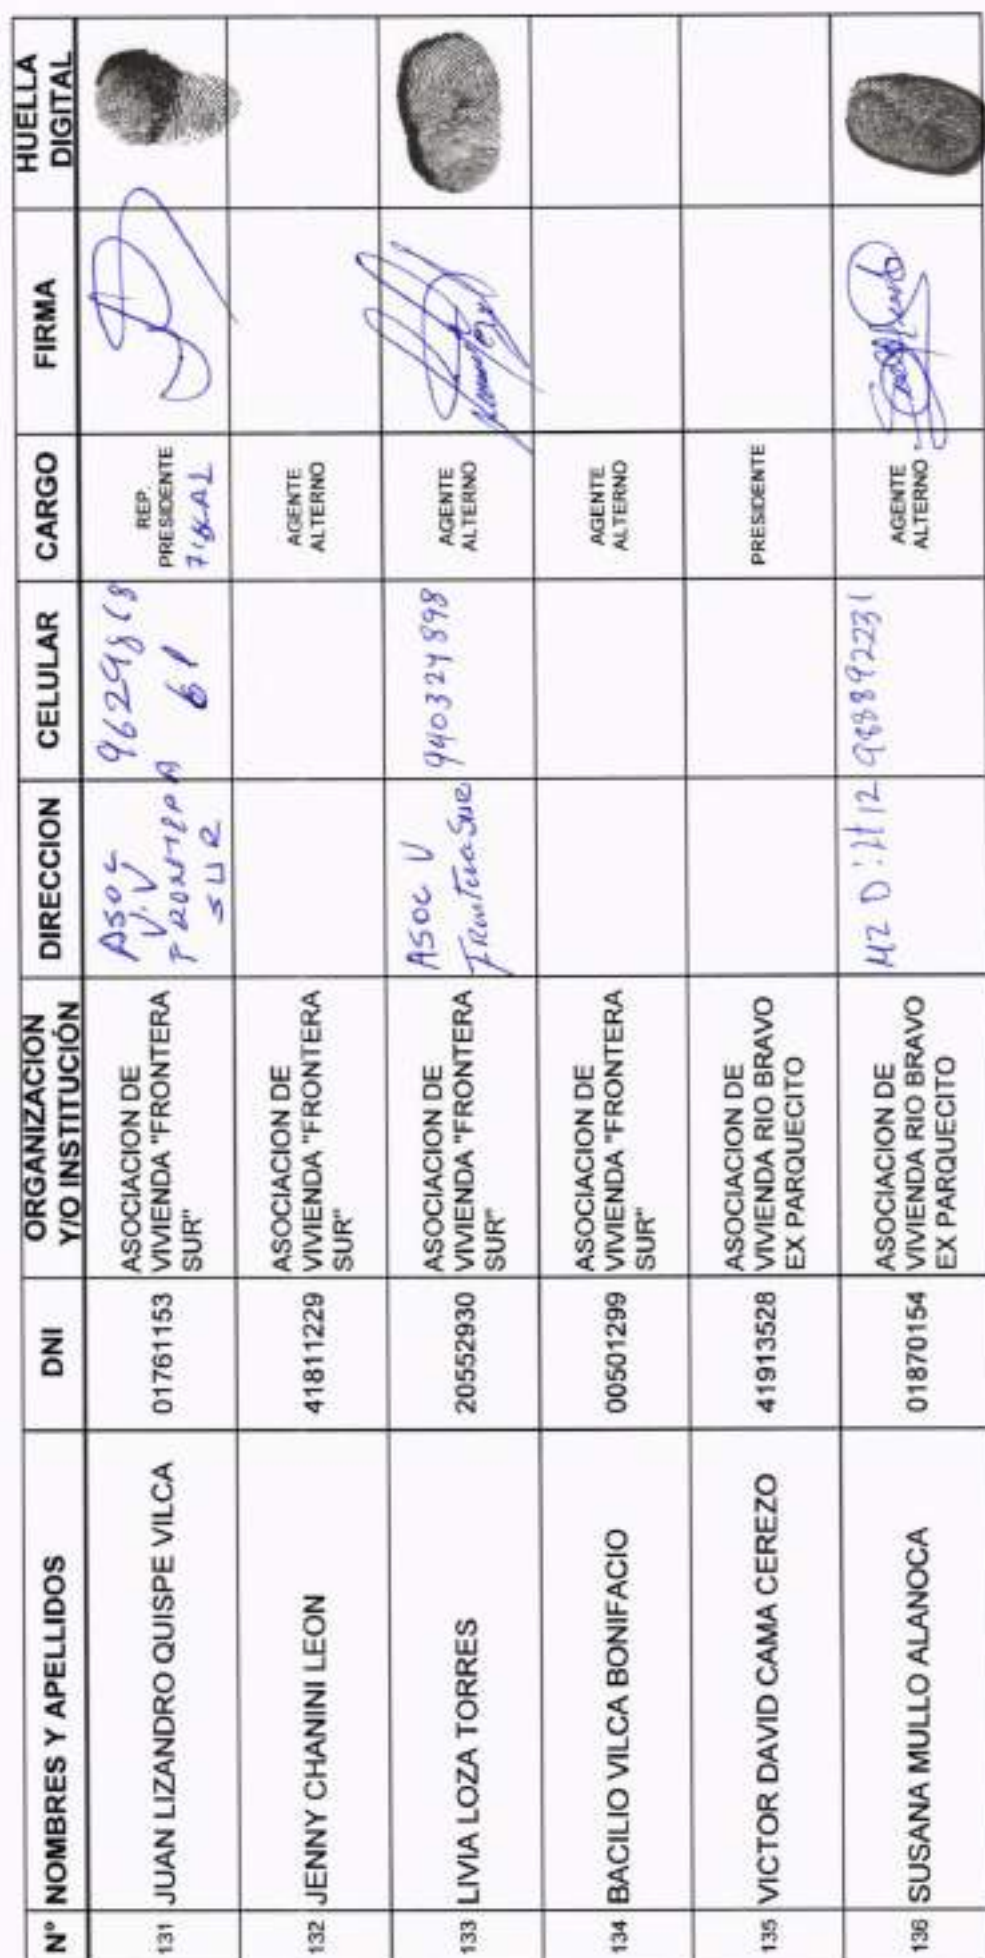 Nº NOMBRES Y APELLIDOS DNI ORGANIZACION Y/O INSTITUCIÓN DIRECCION CELULAR CARGO FIRMA HUELLA DIGITAL
131 JUAN LIZANDRO QUISPE VILCA 01761153 ASOCIACION DE VIVIENDA "FRONTERA SUR" ASOC V.V SUR REP. PRESIDENTE
132 JENNY CHANINI LEON 41811229 ASOCIACION DE VIVIENDA "FRONTERA SUR" AGENTE ALTERNO
133 LIVIA LOZA TORRES 20552930 ASOCIACION DE VIVIENDA "FRONTERA SUR" ASOC V Frontera Sur 940324898 AGENTE ALTERNO
134 BACILIO VILCA BONIFACIO 00501299 ASOCIACION DE VIVIENDA "FRONTERA SUR" AGENTE ALTERNO
135 VICTOR DAVID CAMA CEREZO 41913528 ASOCIACION DE VIVIENDA RIO BRAVO EX PARQUECITO PRESIDENTE
136 SUSANA MULLO ALANOCA 01870154 ASOCIACION DE VIVIENDA RIO BRAVO EX PARQUECITO MZ D 12 988892231 AGENTE ALTERNO